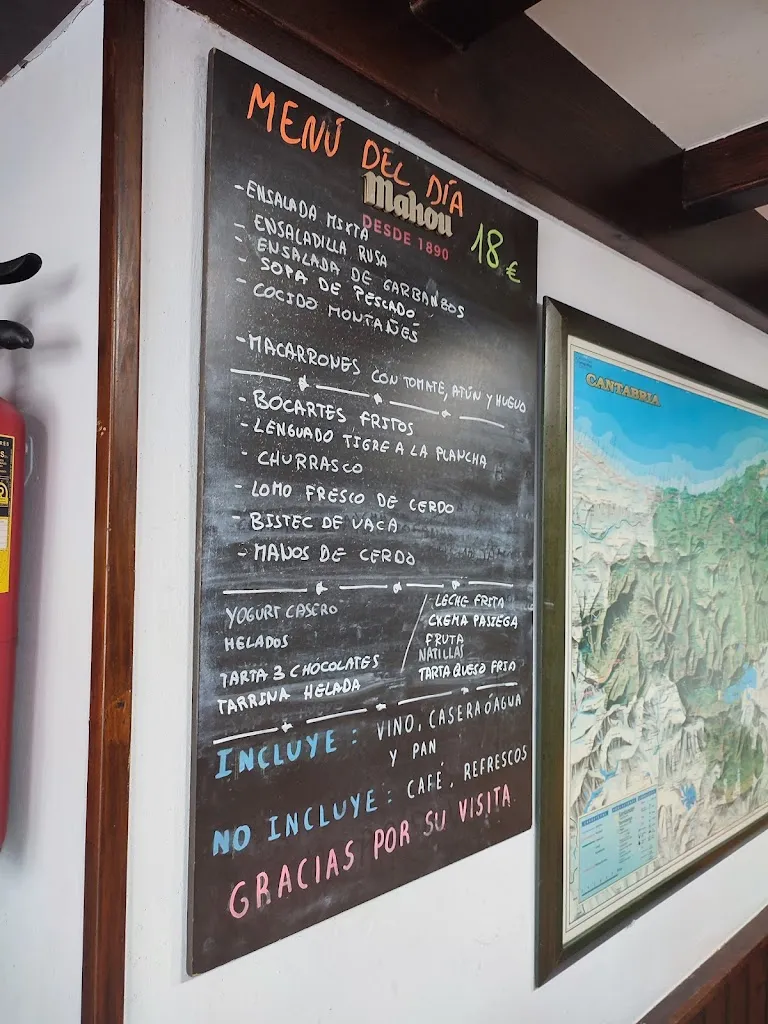 MENÚ DEL DÍA
Mahou
DESDE 1890
18 €
- ENSALADA MIXTA
- ENSALADILLA RUSA
- ENSALADA DE GARBANZOS
- SOPA DE PESCADO
- COCIDO MONTAÑES
- MACARRONES CON TOMATE, ATÚN Y HUEVO
- BOCARTES FRITOS
- LENGUADO TIGRE A LA PLANCHA
- CHURRASCO
- LOMO FRESCO DE CERDO
- BISTEC DE VACA
- MANOS DE CERDO
YOGURT CASERO
HELADOS
TARTA 3 CHOCOLATES
TARRINA HELADA
LECHE FRITA
CREMA PASIEGA
FRUTA
NATILLAS
TARTA QUESO FRIA
INCLUYE: VINO, CASERA Ó AGUA
Y PAN
NO INCLUYE: CAFÉ, REFRESCOS
GRACIAS POR SU VISITA
CANTABRIA